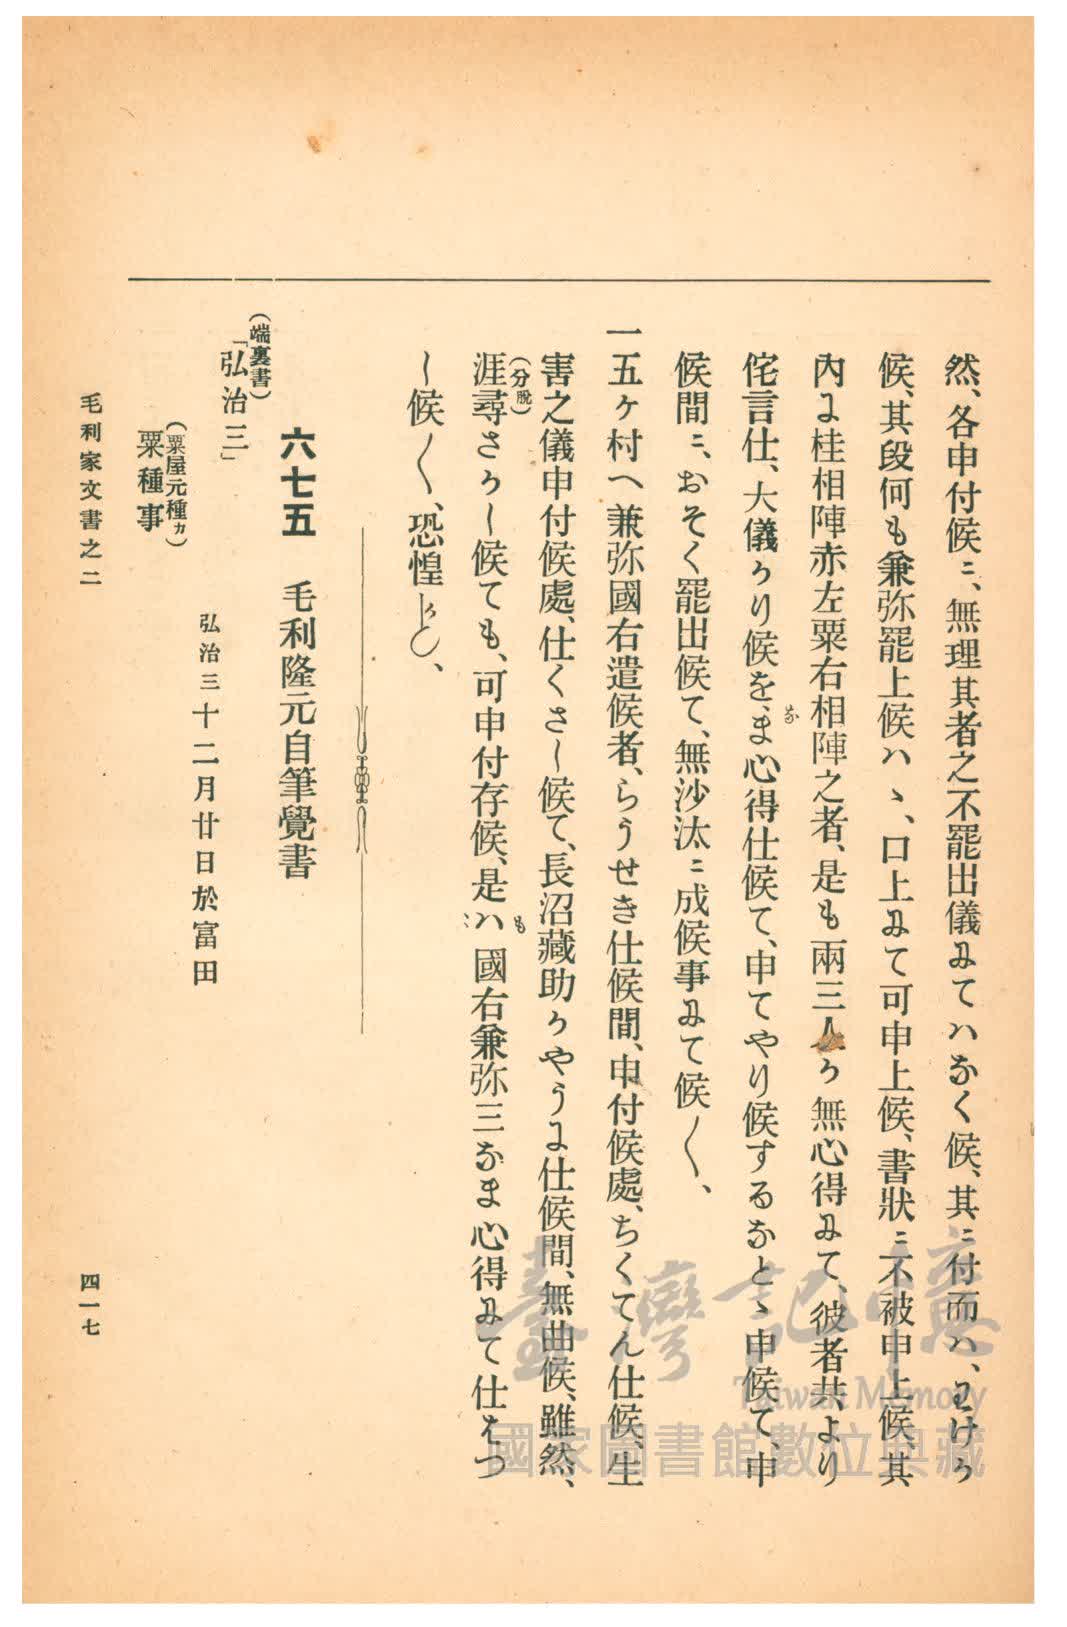 然、各申付候ニ、無理其者之不罷出儀ゟてハなく候、其ニ付而ハ、わけり
候、其段何も兼弥罷上候ハヽ、口上ニて可申上候、書狀ニ不被申上候、其
內よ桂相陣赤左粟右相陣之者、是も兩三人り無心得ニて、彼者共より
侘言仕、大儀りり候を、ま心得仕候て、申てやり候するなとヽ申候て、申
な
候間ニ、おそく罷出候て、無沙汰ニ成候事ニて候〱、
一五ケ村へ兼弥國右遣候者、らうせき仕候間、申付候處、ちくてん仕候、生
害之儀申付候處、仕くさし候て、長沼藏助りやうよ仕候間、無曲候、雖然、
（分脫）
涯尋さりし候ても、可申付存候、是ハ國右兼弥三なま心得ニて仕もつ
も
ニ
し候〱、恐惶
六七五　毛利隆元自筆覺書
（端裏書）
「弘治三」
弘治三十二月廿日於富田
（粟屋元種カ）
粟種事
毛利家文書之二
四一七
臺灣記憶
Taiwan Memory
國家圖書館數位典藏